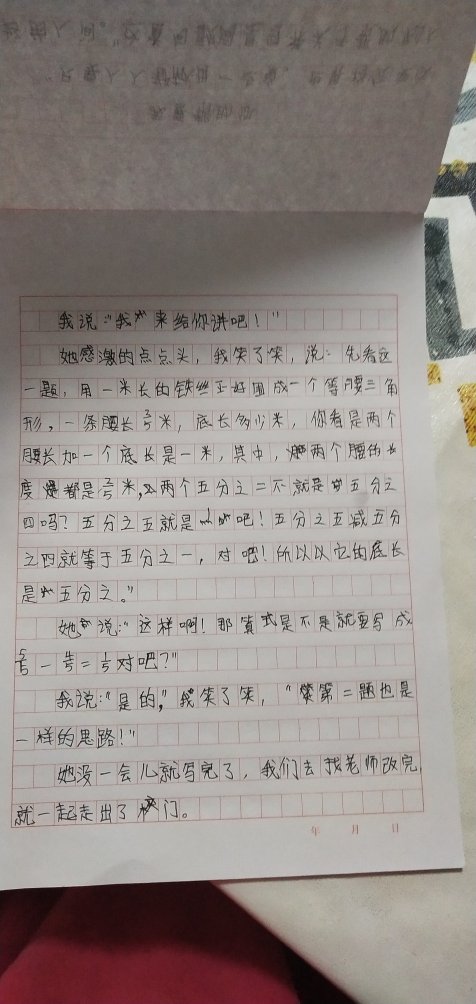 我说："我来给你讲吧！"
她感激的点点头，我笑了笑，说：先看这
一题，用一米长的铁丝正好围成一个等腰三角
形，一条腰长2/5米，底长多少米，你看是两个
腰长加一个底长是一米，其中，两个腰的长
度都是2/5米，两个五分之二不就是五分之
四吗？五分之五就是一吧！五分之五减五分
之四就等于五分之一，对吧！所以以它的底长
是五分之。"
她说："这样啊！那算式是不是就要写成
5/5－4/5＝1/5对吧？"
我说："是的，"我笑了笑，"第二题也是
一样的思路！"
她没一会儿就写完了，我们去找老师改完，
就一起走出了校门。
年 月 日